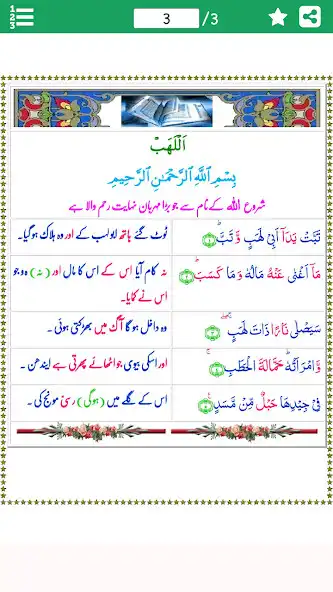 1
2
3
3 /3
اَللَّهَبْ
بِسْمِ ٱللَّهِ ٱلرَّحْمَٰنِ ٱلرَّحِيمِ
شروع اللہ کے نام سے جو بڑا مہربان نہایت رحم والا ہے
تَبَّتْ يَدَآ اَبِىْ لَهَبٍ وَّ تَبَّ ؕ ﴿۱﴾
ٹوٹ گئے ہاتھ ابو لہب کے اور وہ ہلاک ہو گیا۔
مَاۤ اَغْنٰى عَنْهُ مَالُهٗ وَ مَا كَسَبَ ؕ ﴿۲﴾
نہ کام آیا اس کے اس کا مال اور (نہ) وہ جو
اس نے کمایا۔
سَيَصْلٰى نَارًا ذَاتَ لَهَبٍ ۚۖ ﴿۳﴾
وہ داخل ہو گا آگ میں بھڑکتی ہوئی ۔
وَّ امْرَاَتُهٗ ؕ حَمَّالَةَ الْحَطَبِ ۚ ﴿۴﴾
اور اسکی بیوی جو اٹھائے پھرتی ہے ایندھن ۔
فِىْ جِيْدِهَا حَبْلٌ مِّنْ مَّسَدٍ ﴿۵﴾
اس کے گلے میں (ہو گی) رسی مونج کی ۔